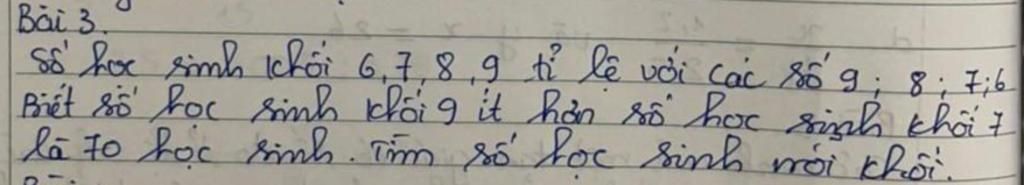 Bài 3.
Số học sinh khối 6, 7, 8, 9 tỉ lệ với các số 9; 8; 7; 6
Biết số học sinh khối 9 ít hơn số học sinh khối 7
là 70 học sinh. Tìm số học sinh mỗi khối.